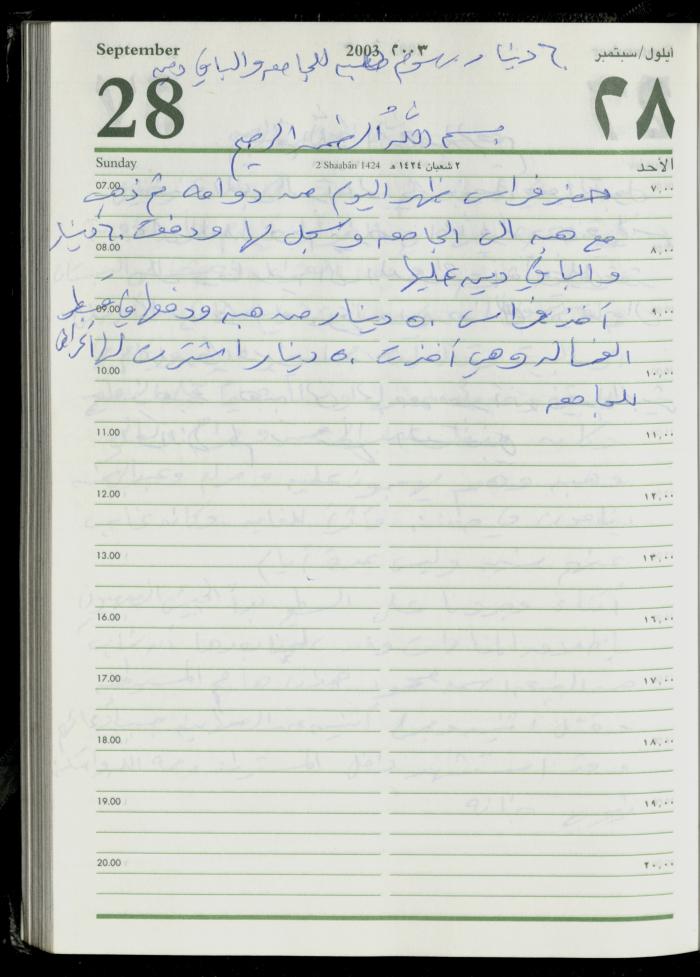 September
2003 ٢٠٠٣
ايلول/سبتمبر
٦٠ دينار رسوم هبه للجامعه والباقي دين
28
٢٨
بسم الله الرحمن الرحيم
Sunday
2 Shaabân 1424
٢ شعبان ١٤٢٤ هـ
الأحد
07.00
٧,٠٠
حضر فراس ظهر اليوم من دوامه ثم ذهب
مع هبه الى الجامعه وسجل لها ودفعت ٦٠ دينار
08.00
٨,٠٠
والباقي دين عليها
09.00
٩,٠٠
أخذ فراس ٥٠ دينار من هبه ودفعها في
الغساله وهي أخذت ٥٠ دينار اشترت لها أغراض
10.00
١٠,٠٠
للجامعه
11.00
١١,٠٠
12.00
١٢,٠٠
13.00
١٣,٠٠
16.00
١٦,٠٠
17.00
١٧,٠٠
18.00
١٨,٠٠
19.00
١٩,٠٠
20.00
٢٠,٠٠